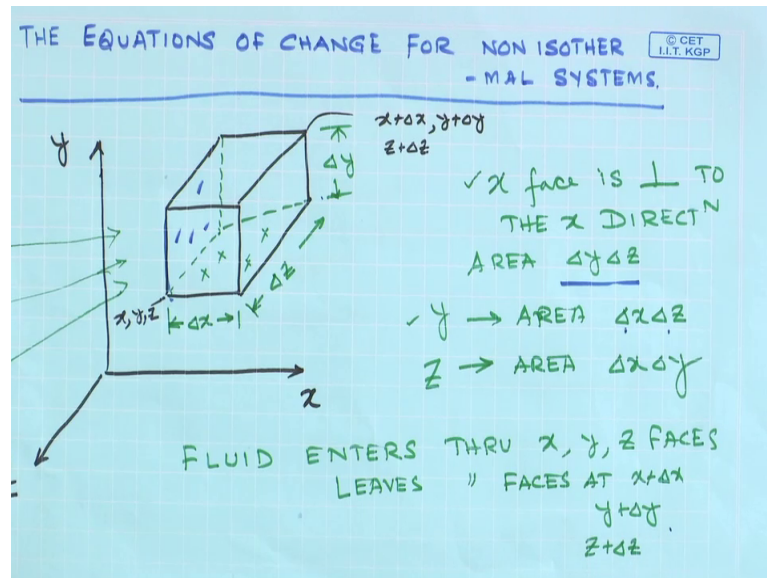 THE EQUATIONS OF CHANGE FOR NON ISOTHER
- MAL SYSTEMS.
© CET
I.I.T. KGP
x+Δx, y+Δy
z+Δz
y
Δy
✓ x face is ⊥ TO
THE x DIRECTᴺ
AREA ΔyΔz
Δz
x,y,z
Δx
✓ y → AREA ΔxΔz
x
z → AREA ΔxΔy
FLUID ENTERS THRU x, y, z FACES
LEAVES " FACES AT x+Δx
y+Δy.
z+Δz